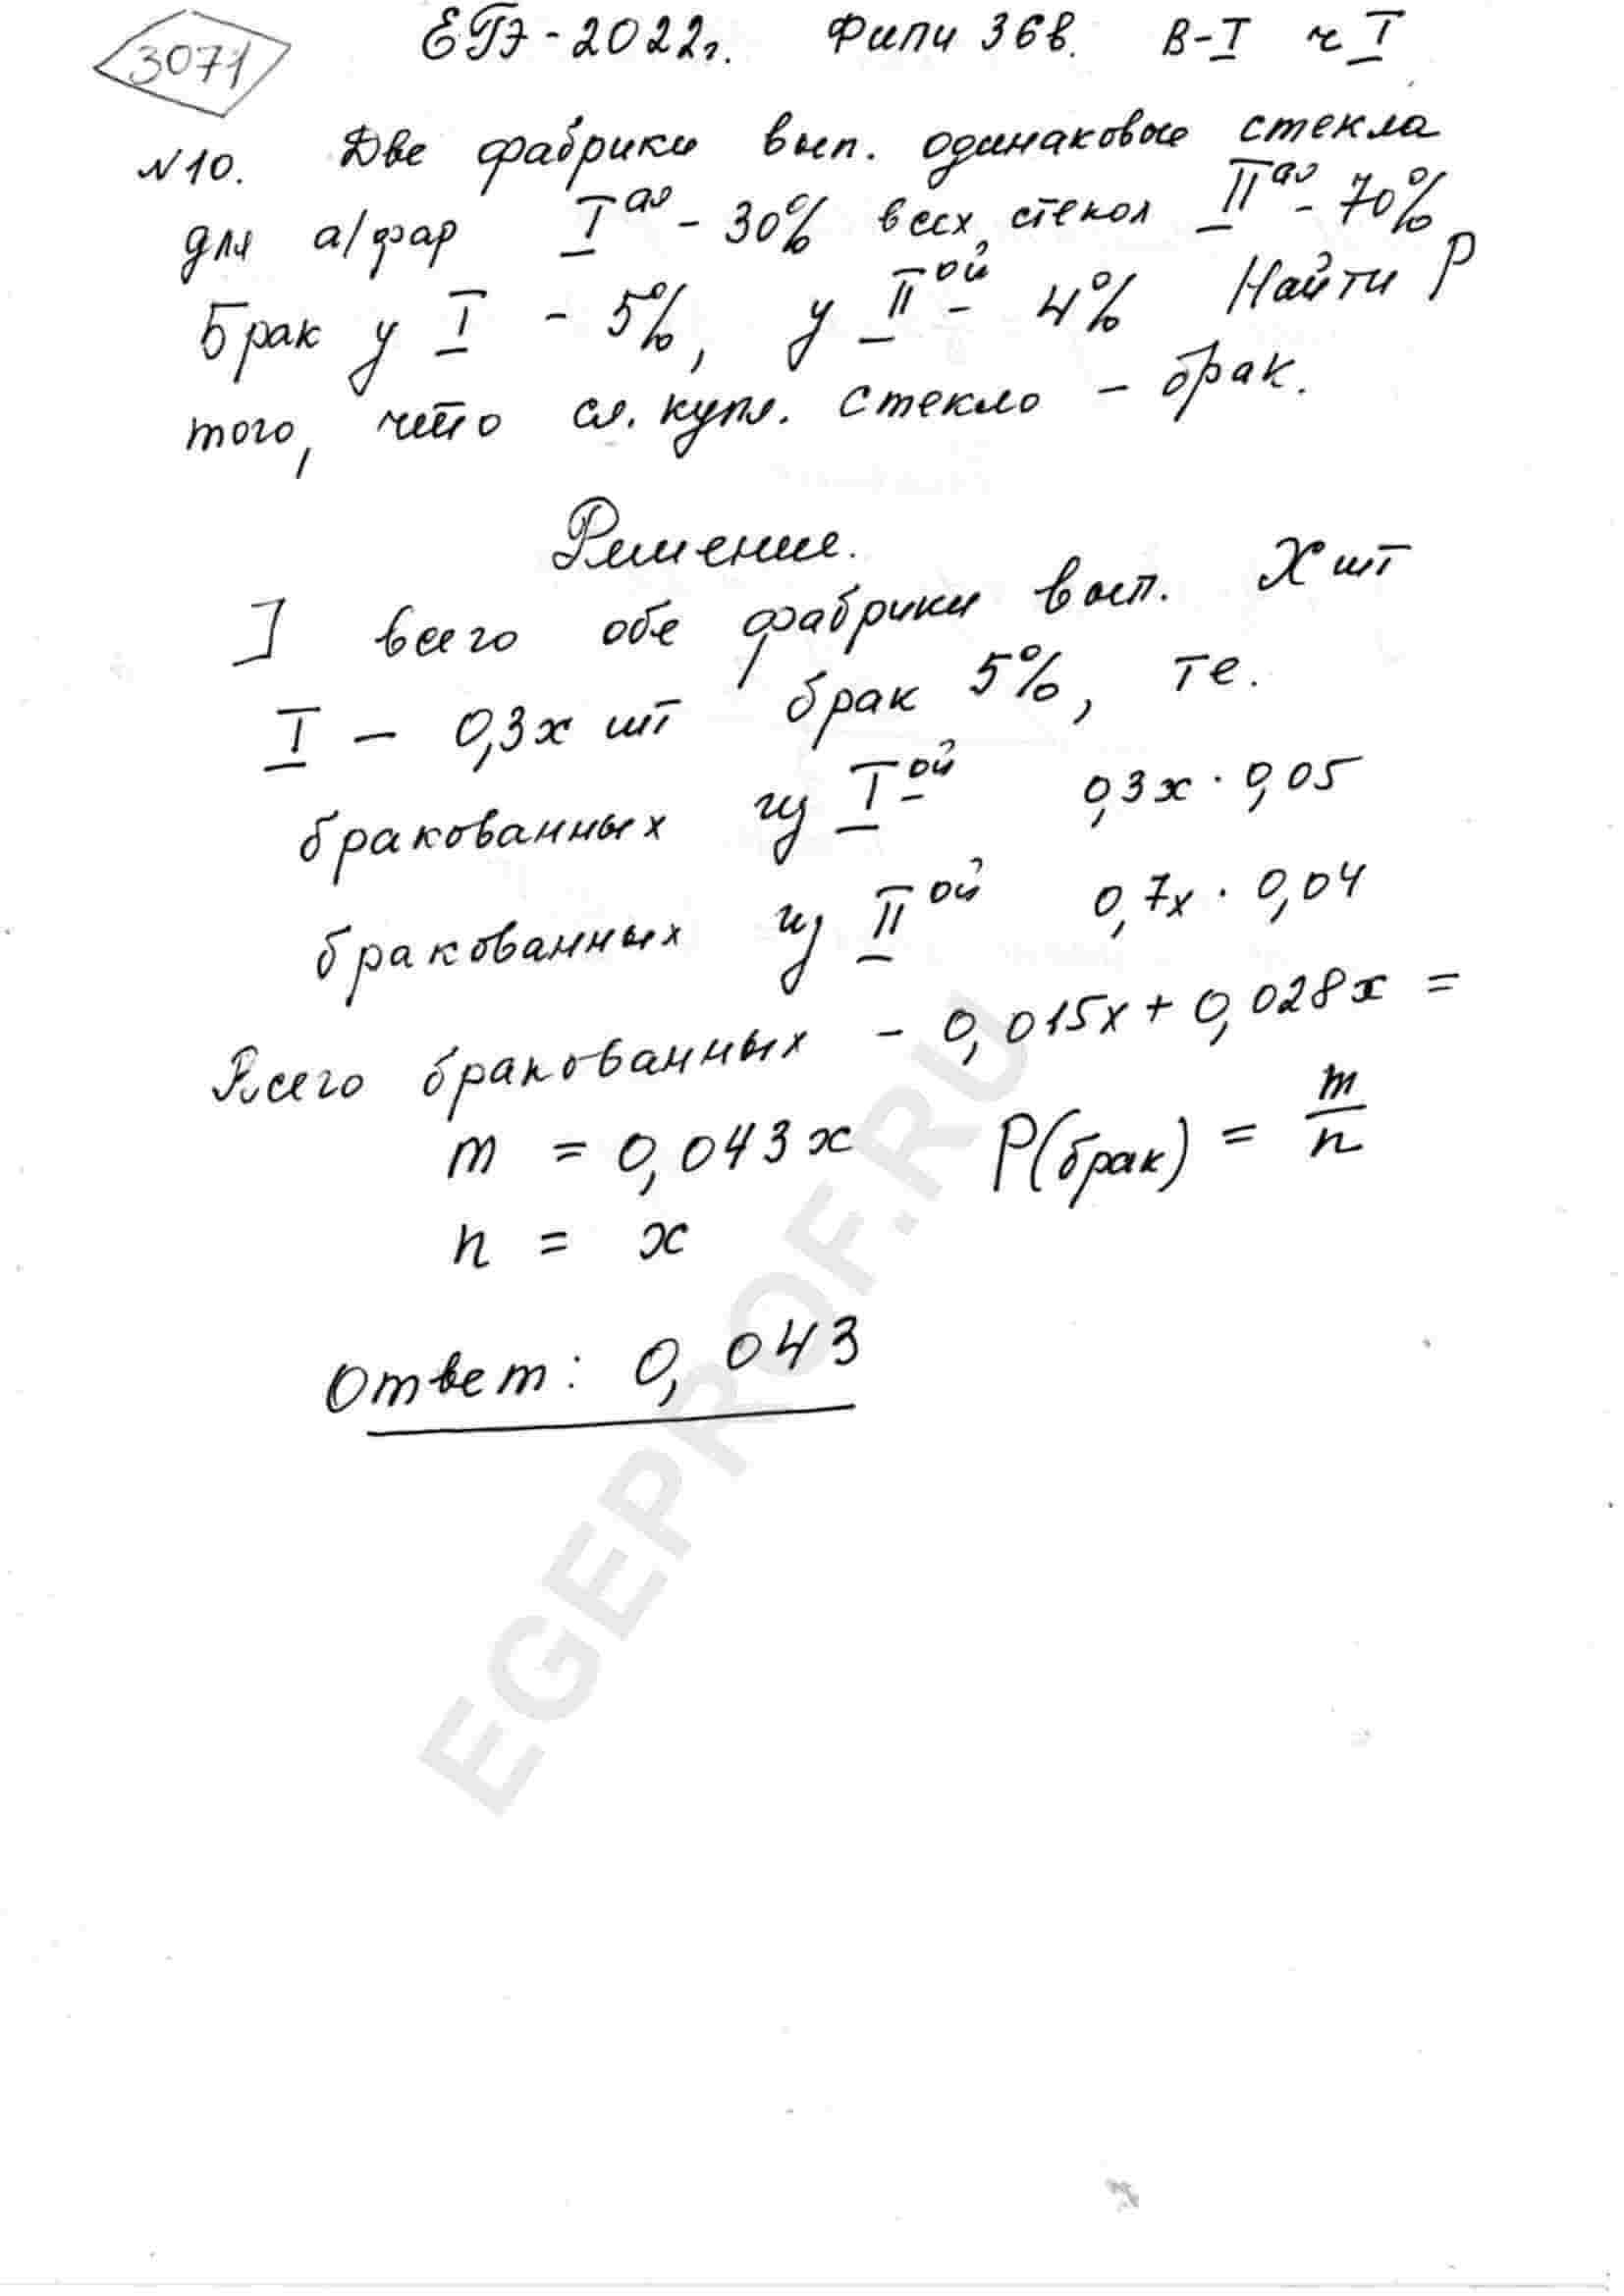 3071
ЕГЭ-2022г. Фипи 36в. В-I ч I
№10. Две фабрики вып. одинаковые стекла
для а/фар I ая - 30% всех стекол II ая - 70%
Брак у I - 5%, у II ой - 4% Найти P
того, что сл. купл. стекло - брак.
Решение.
] всего обе фабрики вып. X шт
I - 0,3x шт брак 5%, те.
бракованных из I ой 0,3x · 0,05
бракованных из II ой 0,7x · 0,04
Всего бракованных - 0,015x + 0,028x =
m = 0,043x P(брак) = m/n
n = x
Ответ: 0,043
EGEPROF.RU